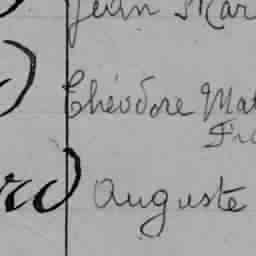 Jean Mar
Théodore Mat
Fra
rd Auguste